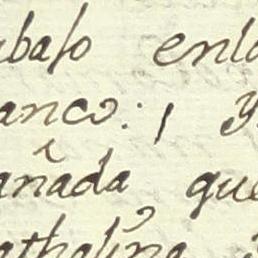 abaſo enla
anco:, y
añada que
athalina